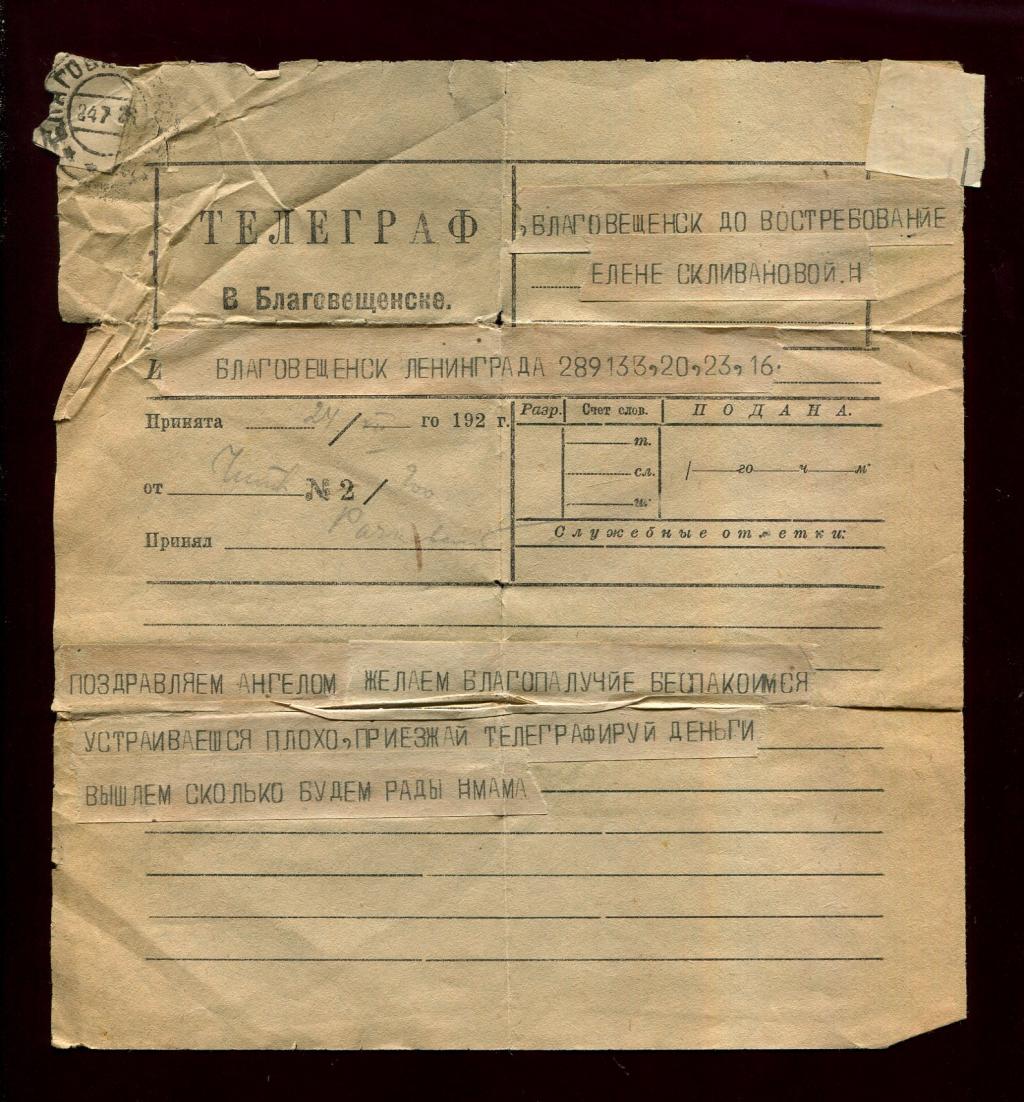 24.7.2
ТЕЛЕГРАФ
В Благовещенске.
,БЛАГОВЕЩЕНСК ДО ВОСТРЕБОВАНИЕ
ЕЛЕНЕ СКЛИВАНОВОЙ.Н
БЛАГОВЕЩЕНСК ЛЕНИНГРАДА 289133,20,23,16.
Принята 24/VII го 192 г.
Разр. Счет слов. ПОДАНА.
т.
/ го ч м
сл.
от № 2/
ш.
Принял
Служебные отметки:
ПОЗДРАВЛЯЕМ АНГЕЛОМ ЖЕЛАЕМ БЛАГОПАЛУЧИЕ БЕСПАКОИМСЯ
УСТРАИВАЕШСЯ ПЛОХО,ПРИЕЗЖАЙ ТЕЛЕГРАФИРУЙ ДЕНЬГИ
ВЫШЛЕМ СКОЛЬКО БУДЕМ РАДЫ НМАМА